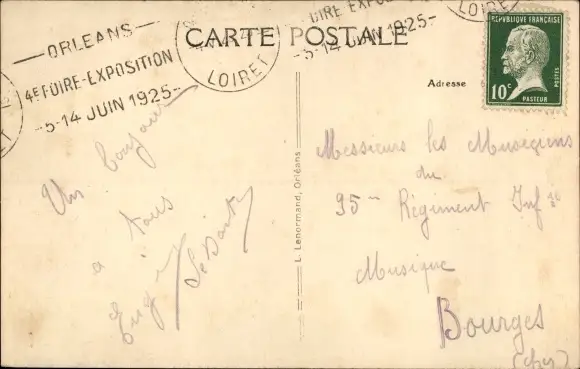 ORLEANS
4E FOIRE-EXPOSITION
5-14 JUIN 1925-
LOIRET
CARTE POSTALE
OIRE-EXPO
-5-14 JUIN 1925-
LOIRET
RÉPUBLIQUE FRANÇAISE
10c
POSTES
PASTEUR
Adresse
Un bonjour
a tous
L. Lenormand, Orléans
Messieurs les Musiciens
du
95me Régiment Infie
Musique
Bourges
(Cher)